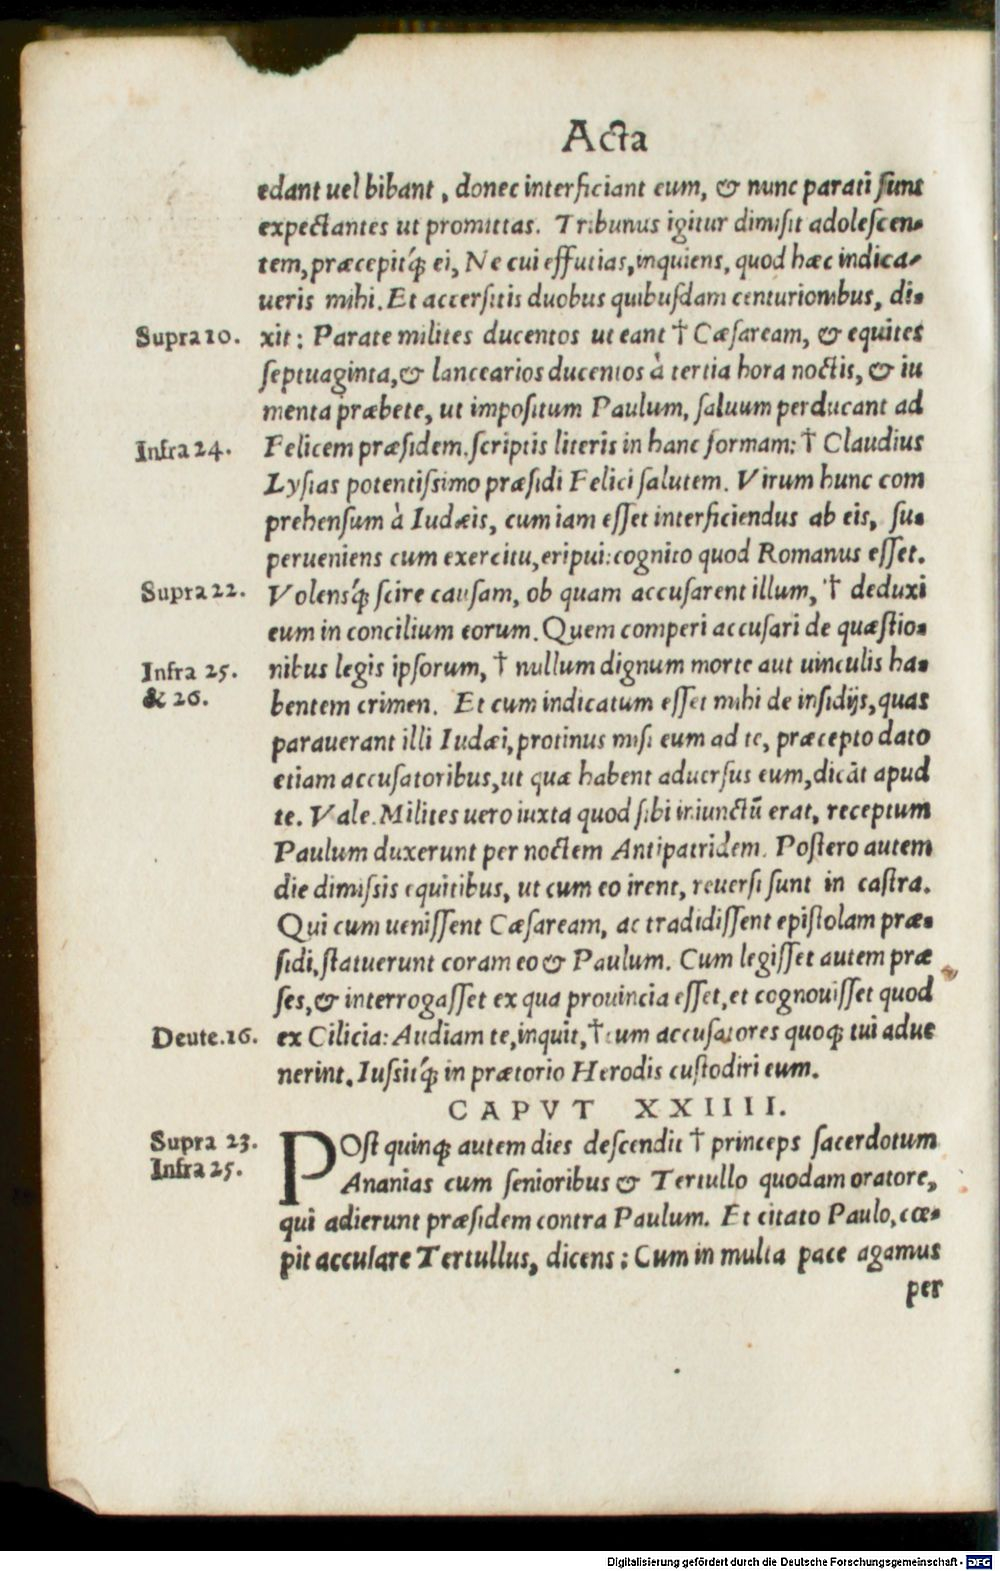 Acta
edant uel bibant, donec interficiant eum, & nunc parati ſunt
expectantes ut promittas. Tribunus igitur dimiſit adoleſcen-
tem, præcepitq́; ei, Ne cui effutias, inquiens, quod hæc indica-
ueris mihi. Et accerſitis duobus quibuſdam centurionibus, di-
Supra 10. xit: Parate milites ducentos ut eant † Cæſaream, & equites
ſeptuaginta, & lancearios ducentos à tertia hora noctis, & iu
menta præbete, ut impoſitum Paulum, ſaluum perducant ad
Infra 24. Felicem præſidem. ſcriptis literis in hanc formam: † Claudius
Lyſias potentiſsimo præſidi Felici ſalutem. Virum hunc com
prehenſum à Iudæis, cum iam eſſet interficiendus ab eis, ſu-
perueniens cum exercitu, eripui: cognito quod Romanus eſſet.
Supra 22. Volensq́; ſcire cauſam, ob quam accuſarent illum, † deduxi
eum in concilium eorum. Quem comperi accuſari de quæſtio-
Infra 25. nibus legis ipſorum, † nullum dignum morte aut uinculis ha-
& 26. bentem crimen. Et cum indicatum eſſet mihi de inſidijs, quas
parauerant illi Iudæi, protinus miſi eum ad te, præcepto dato
etiam accuſatoribus, ut quæ habent aduerſus eum, dicāt apud
te. Vale. Milites uero iuxta quod ſibi iniunctū erat, receptum
Paulum duxerunt per noctem Antipatridem. Poſtero autem
die dimiſsis equitibus, ut cum eo irent, reuerſi ſunt in caſtra.
Qui cum ueniſſent Cæſaream, ac tradidiſſent epiſtolam præ-
ſidi, ſtatuerunt coram eo & Paulum. Cum legiſſet autem præ
ſes, & interrogaſſet ex qua prouincia eſſet, et cognouiſſet quod
Deute. 16. ex Cilicia: Audiam te, inquit, † cum accuſatores quoq; tui adue
nerint. Iuſsitq́; in prætorio Herodis cuſtodiri eum.
CAPVT XXIIII.
Supra 23. POſt quinq; autem dies deſcendit † princeps ſacerdotum
Infra 25. Ananias cum ſenioribus & Tertullo quodam oratore,
qui adierunt præſidem contra Paulum. Et citato Paulo, cœ-
pit acculare Tertullus, dicens: Cum in multa pace agamus
per
Digitalisierung gefördert durch die Deutsche Forschungsgemeinschaft - DFG